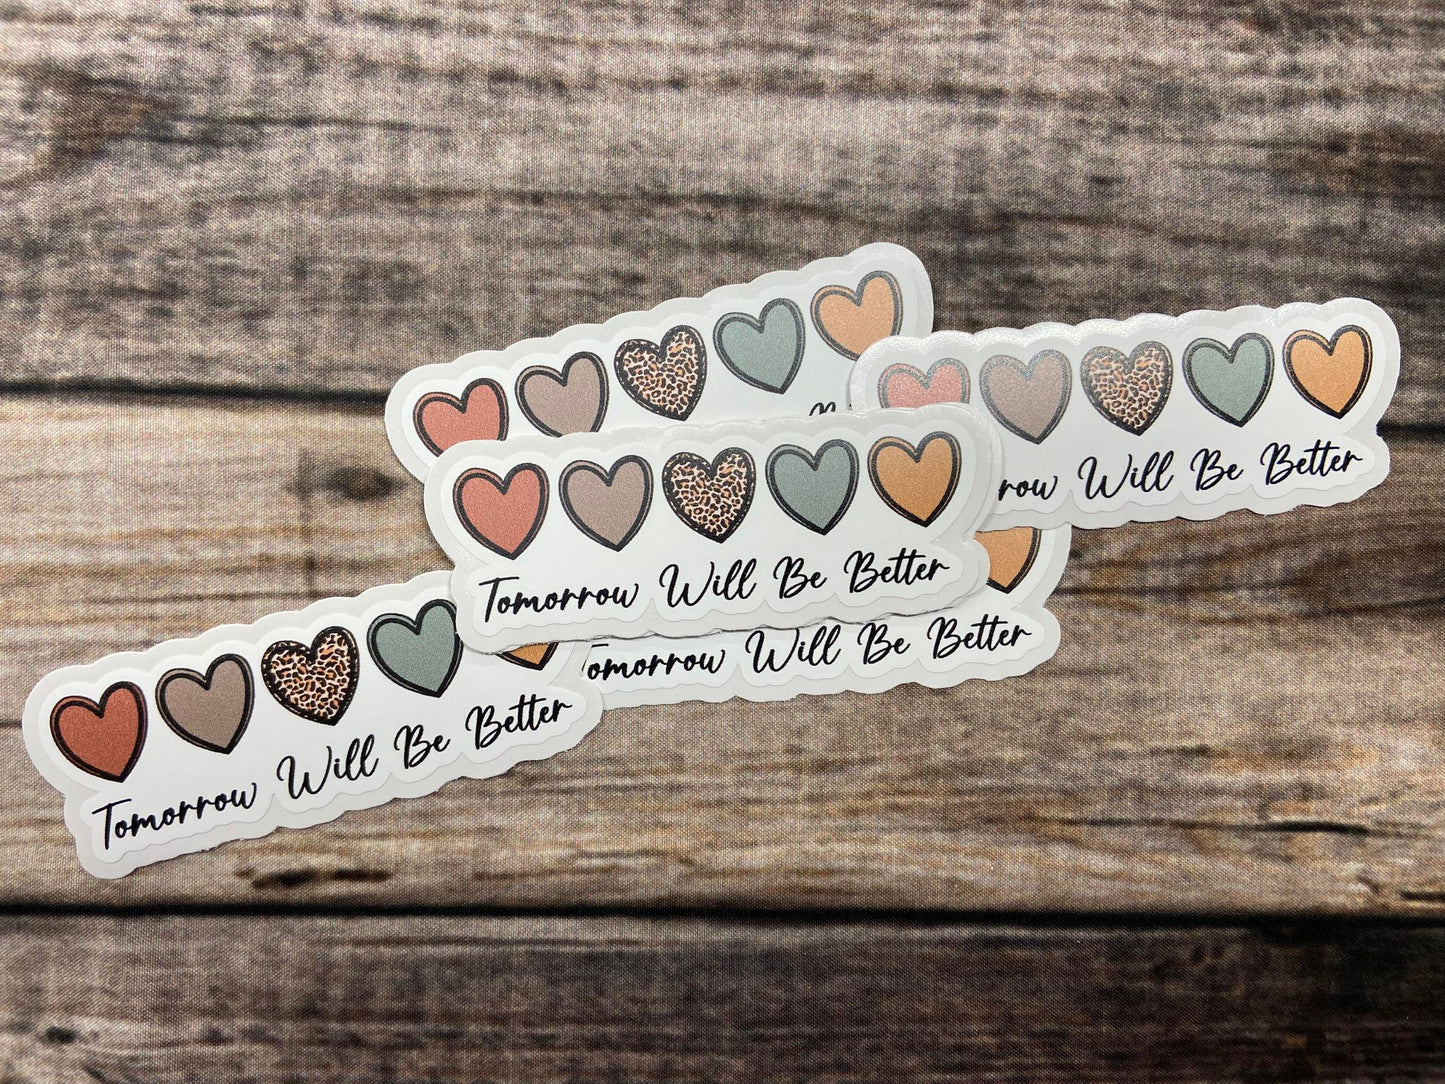 row Will Be Better
Tomorrow Will Be Better
Tomorrow Will Be Better
Tomorrow Will Be Better